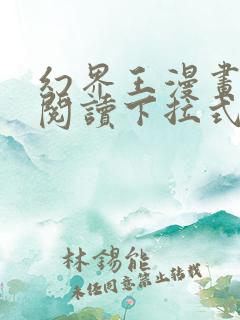 幻界王漫畫
閱讀下拉式
林錫能
未经同意禁止转载